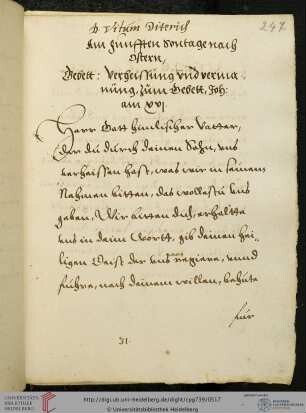 D. Vitum Diterich
247
Am Funfften Sontage nach
Ostern,
Gebett: Verheissung und verma
nung, zum Gebett, Joh:
am XVI.
Herr Gott himlischer Vatter,
der du durch deinen Sohn, uns
verheissen hast, was wir in seinem
Nahmen bitten, das wollestu uns
geben, Wir bitten dich, erhalte
uns in deim Wortt, gib deinen hei-
ligen Geist der uns regiere, unnd
führe, nach deinem willen, behüte
für
31.
UNIVERSITÄTS-
BIBLIOTHEK
HEIDELBERG
http://digi.ub.uni-heidelberg.de/diglit/cpg739/0517
© Universitätsbibliothek Heidelberg